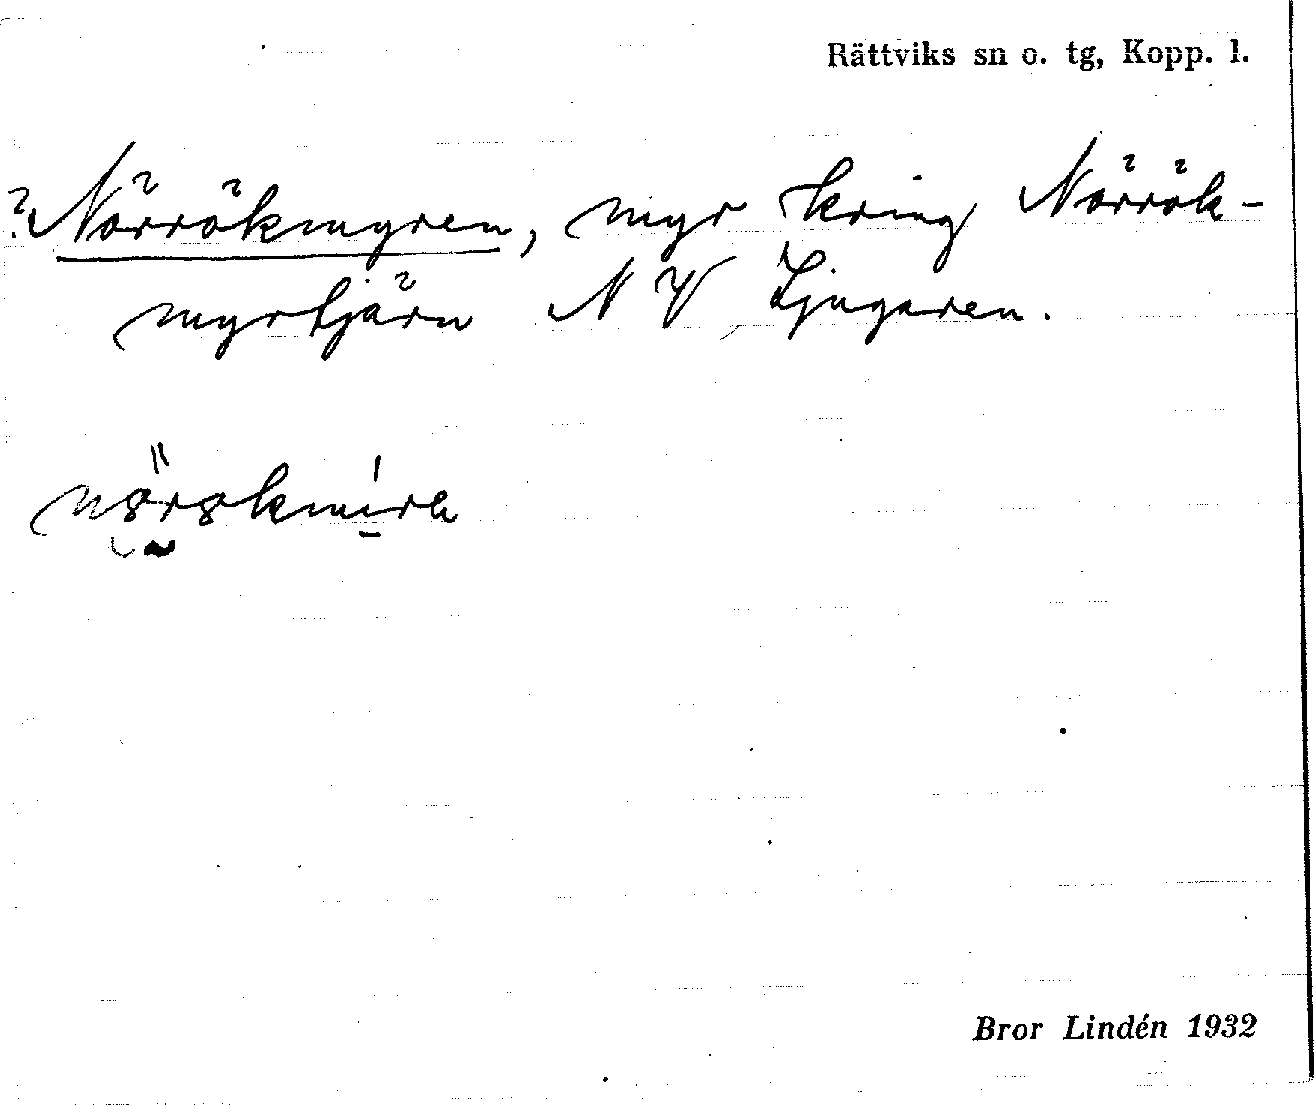 Rättviks sn o. tg, Kopp. l.
? Nörrökmyren, myr kring Nörrök-
myrtjärn NV Ljugaren.
Bror Lindén 1932